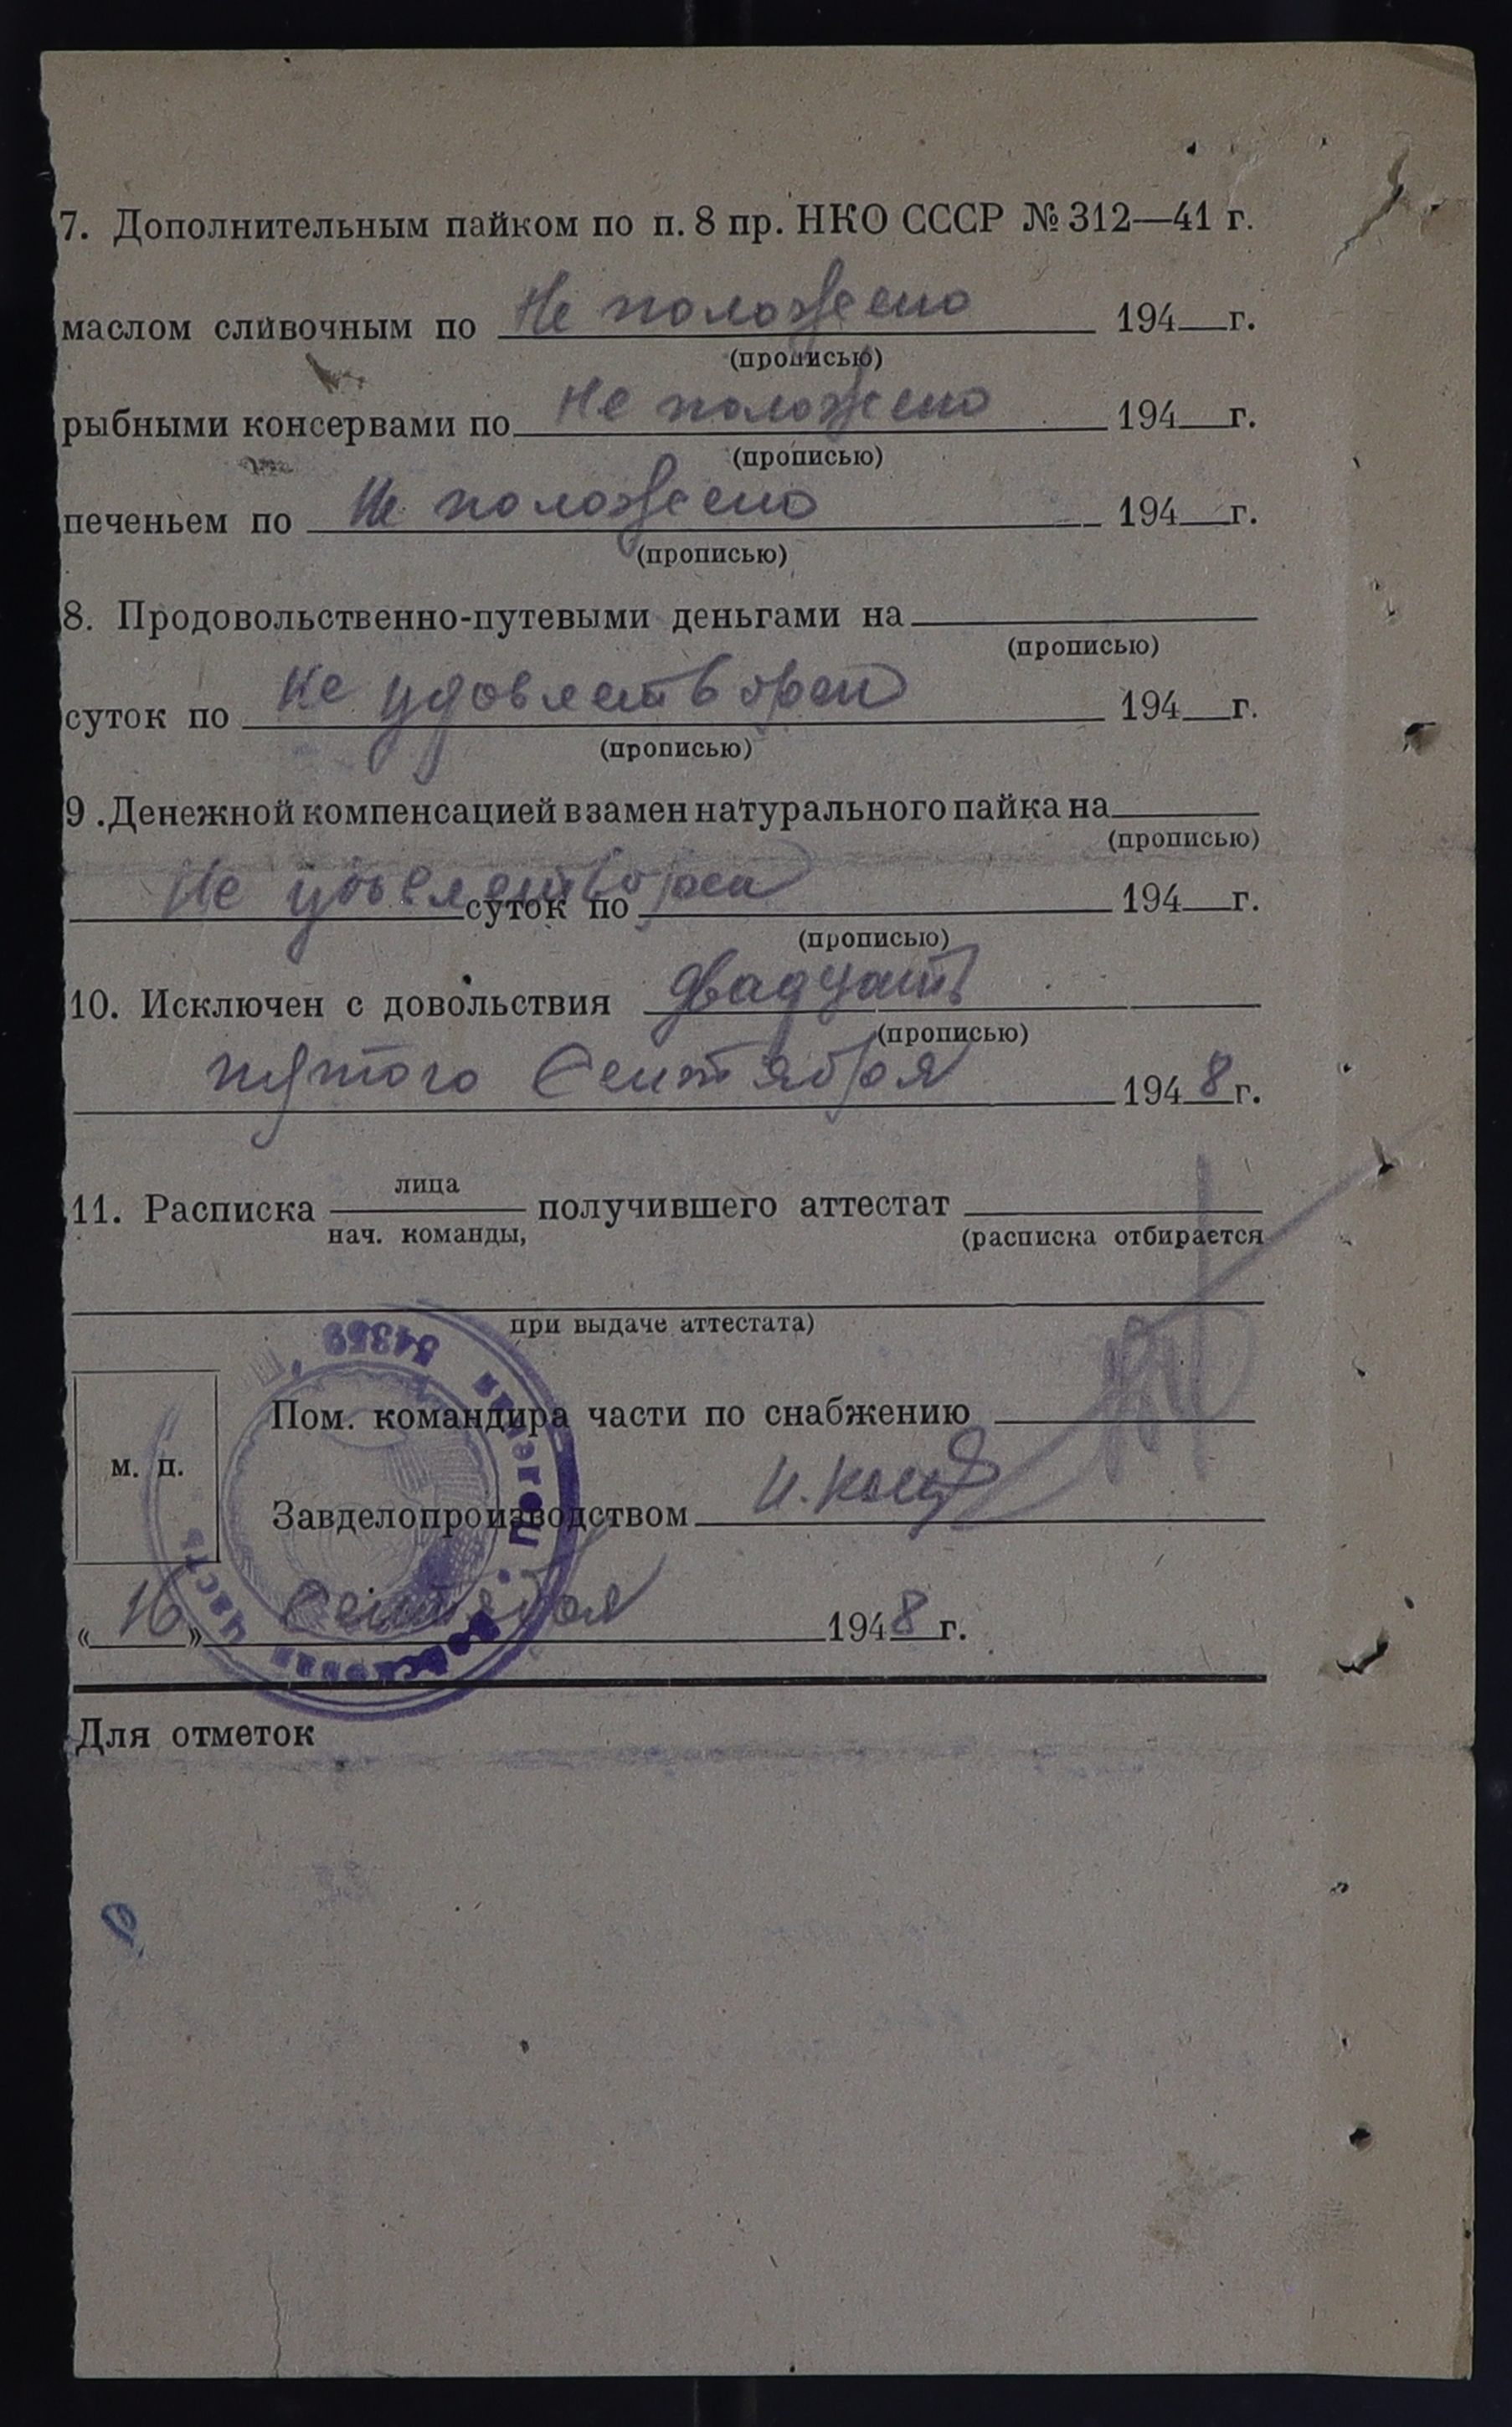 7. Дополнительным пайком по п. 8 пр. НКО СССР № 312—41 г.
маслом сливочным по Не положено 194 г.
(прописью)
рыбными консервами по Не положено 194 г.
(прописью)
печеньем по Не положено 194 г.
(прописью)
8. Продовольственно-путевыми деньгами на
(прописью)
суток по не удовлетворен 194 г.
(прописью)
9. Денежной компенсацией взамен натурального пайка на
(прописью)
Не удовлетворен суток по 194 г.
(прописью)
10. Исключен с довольствия двадцать
(прописью)
пятого Сентября 1948 г.
лица
11. Расписка получившего аттестат
нач. команды, (расписка отбирается
при выдаче аттестата)
54359
Пом. командира части по снабжению
м. п.
Завделопроизводством
Войсковая часть Полевая
«16» Сентября 1948 г.
Для отметок